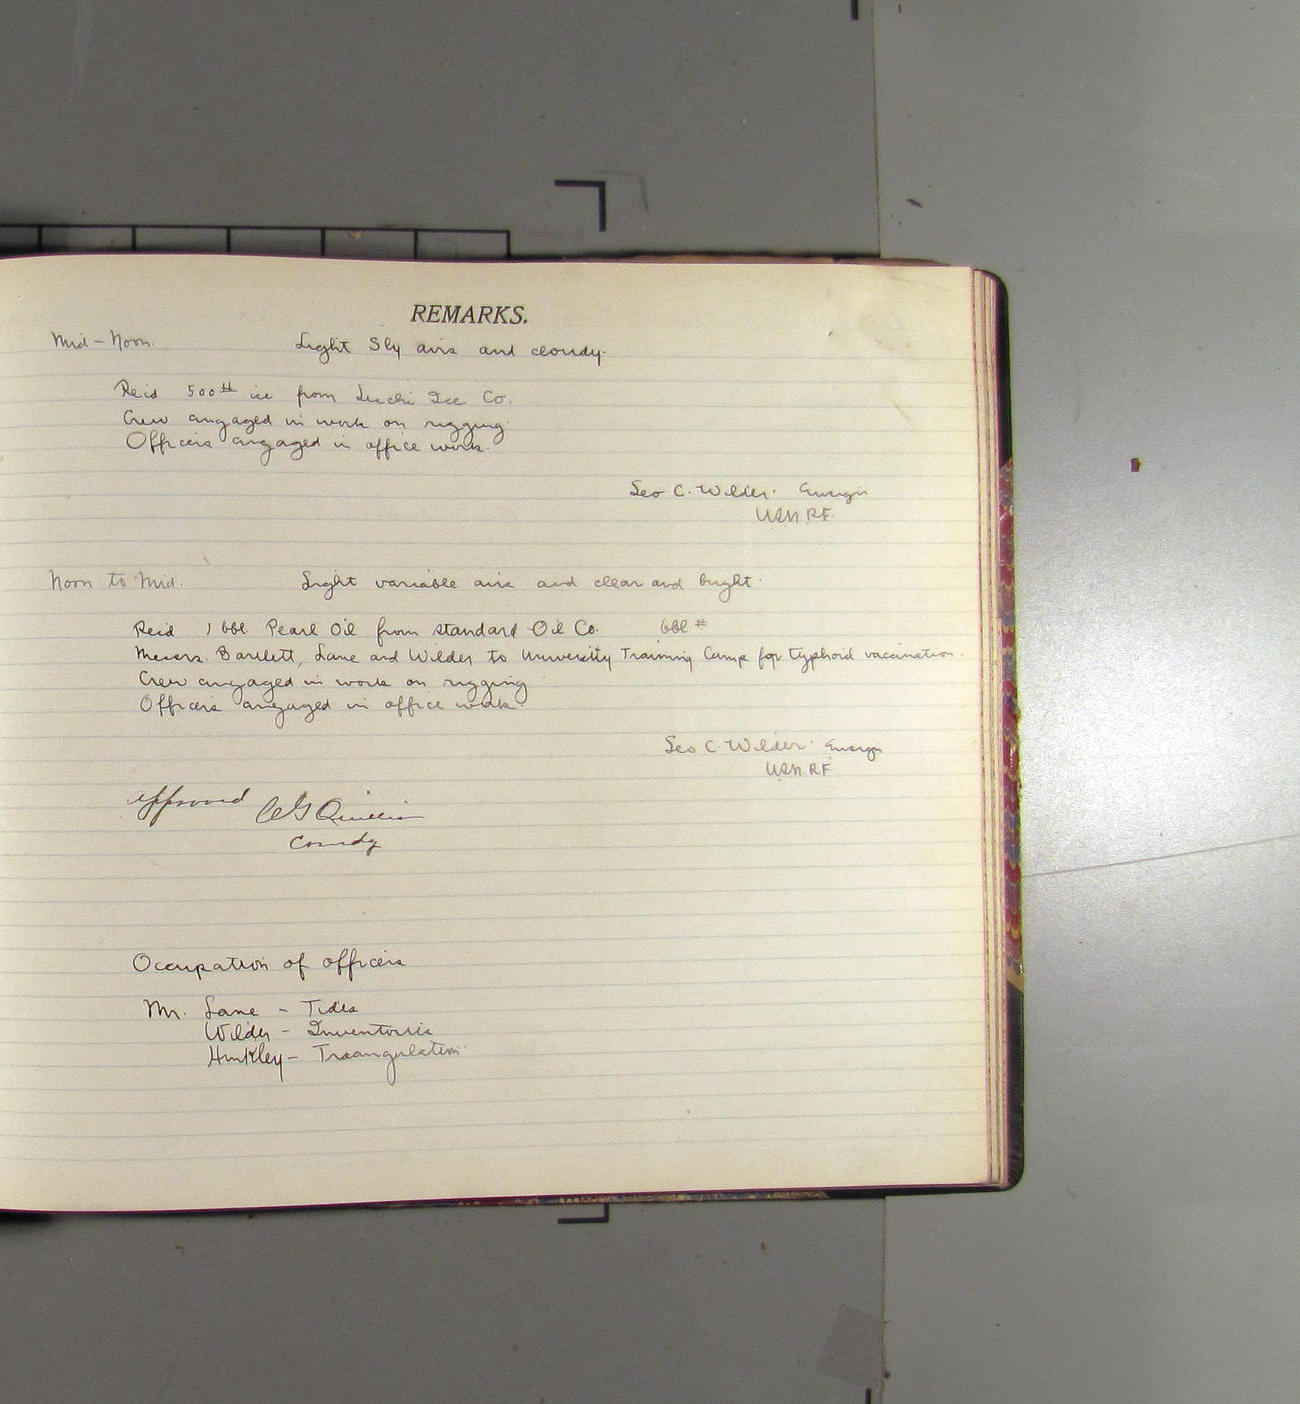 REMARKS.
Mid - Noon. Light Sly airs and cloudy.
Rec'd 500# ice from Ice Co.
Crew engaged in work on rigging.
Officers engaged in office work.
Geo C. Wilder. Ensign
USN.RF.
Noon to Mid. Light variable airs and clear and bright.
Rec'd 1 bbl Pearl Oil from Standard Oil Co. bbl #
Messrs. Bartlett, Lane and Wilder to University Training Camp for typhoid vaccination.
Crew engaged in work on rigging
Officers engaged in office work.
Geo C. Wilder. Ensign
USN.RF
Approved
Comdg
Occupation of officers
Mr. Lane - Tides
Wilder - Inventories
Hinkley - Triangulation